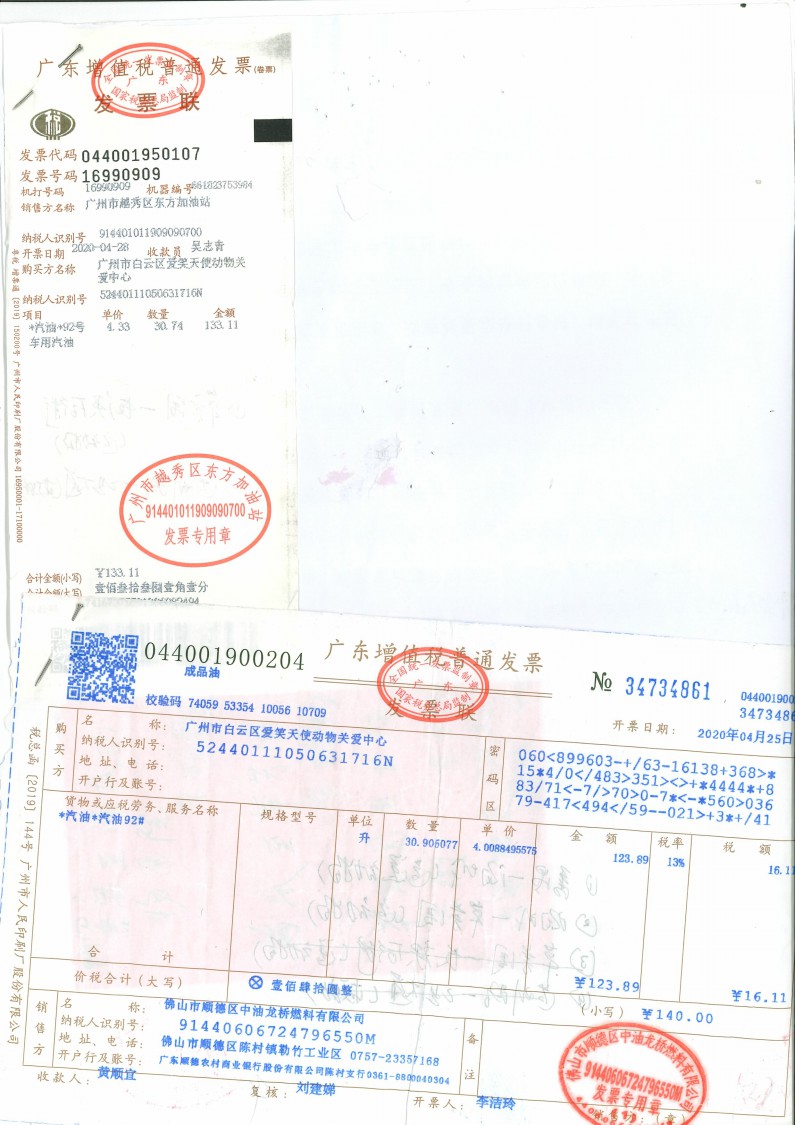 广东增值税普通发票(卷票)
发票联
发票代码 044001950107
发票号码 16990909
机打号码 16990909 机器编号 661623753984
销售方名称 广州市越秀区东方加油站
纳税人识别号 914401011909090700
开票日期 2020-04-28 收款员 吴志青
购买方名称 广州市白云区爱笑天使动物关
爱中心
纳税人识别号 52440111050631716N
项目 单价 数量 金额
*汽油*92号 4.33 30.74 133.11
车用汽油
广州市越秀区东方加油站
914401011909090700
发票专用章
合计金额(小写) ¥133.11
合计金额(大写) 壹佰叁拾叁圆壹角壹分
044001900204
广东增值税普通发票
发票联
成品油
№ 34734861
校验码 74059 53354 10056 10709
开票日期: 2020年04月25日
购买方
名称: 广州市白云区爱笑天使动物关爱中心
纳税人识别号: 52440111050631716N
地址、电话:
开户行及账号:
密码区
060<899603-+/63-16138+368>*
15*4/0</483>351><>+*4444*+8
83/71<-7/>70>0-7*<-*560>036
79-417<494</59--021>+3*+/41
货物或应税劳务、服务名称 规格型号 单位 数量 单价 金额 税率 税额
*汽油*汽油92# 升 30.905077 4.0088495575 123.89 13% 16.11
合计 ¥123.89 ¥16.11
价税合计(大写) ⊗壹佰肆拾圆整 (小写) ¥140.00
销售方
名称: 佛山市顺德区中油龙桥燃料有限公司
纳税人识别号: 91440606724796550M
地址、电话: 佛山市顺德区陈村镇勒竹工业区 0757-23357168
开户行及账号: 广东顺德农村商业银行股份有限公司陈村支行0361-8800040304
备注
佛山市顺德区中油龙桥燃料有限公司
91440606724796550M
发票专用章
收款人: 黄顺宜 复核: 刘建娣 开票人: 李洁玲
税总函〔2019〕144号 广州市人民印刷厂股份有限公司